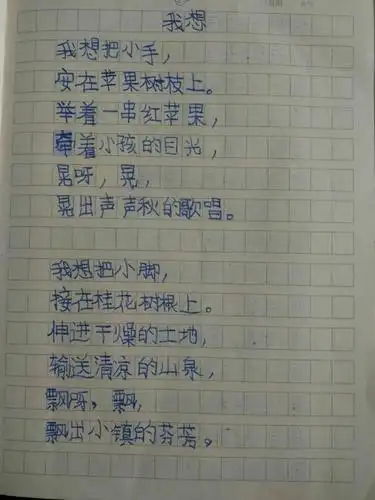 我想
我想把小手，
安在苹果树枝上。
举着一串红苹果，
牵着小孩的目光，
晃呀，晃，
晃出声声秋的歌唱。
我想把小脚，
接在桂花树根上。
伸进干燥的土地，
输送清凉的山泉，
飘呀，飘，
飘出小镇的芬芳。